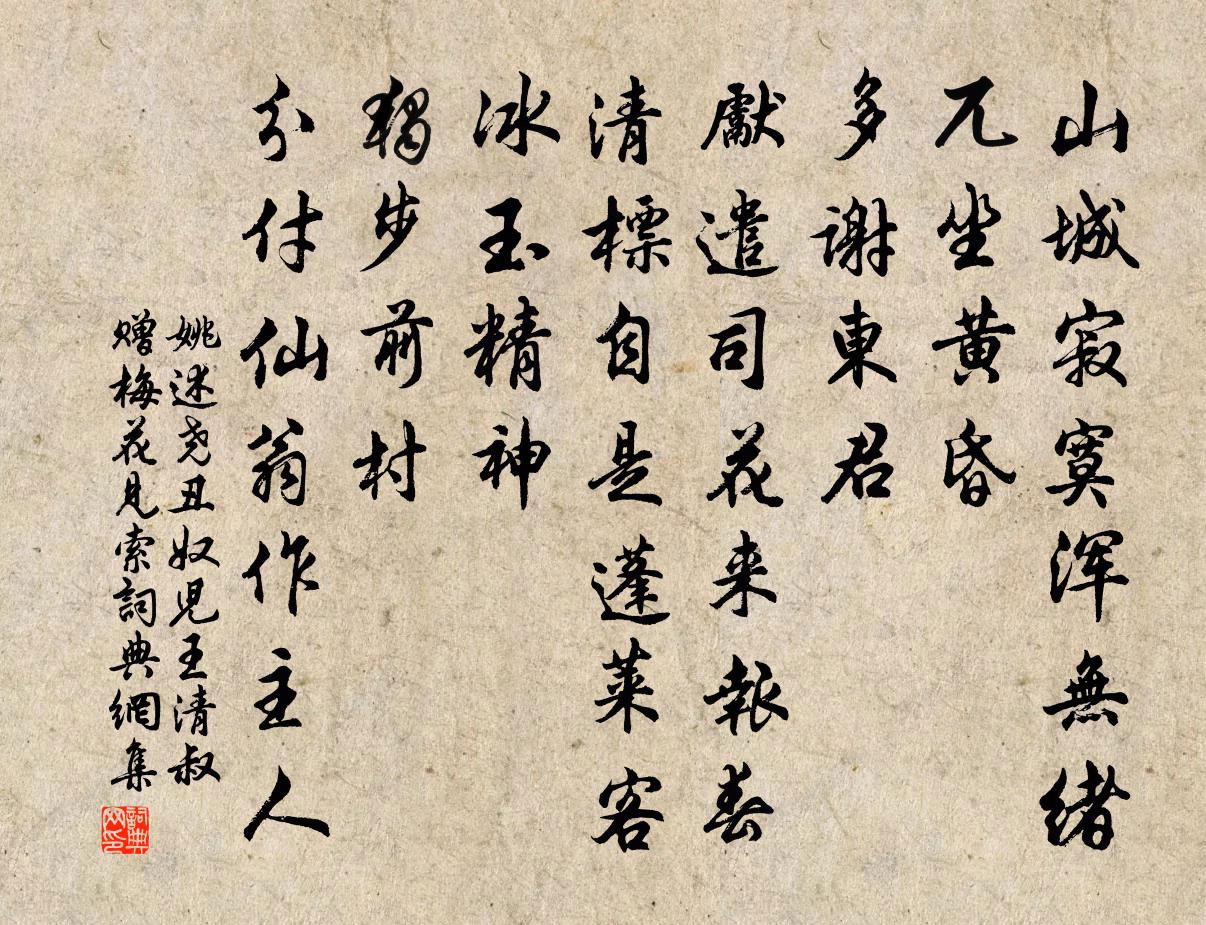 山城寂寞浑無緒
兀坐黄昏
多謝東君
獻遣司花来報春
清標自是蓬莱客
冰玉精神
獨步前村
分付仙翁作主人
姚述尧丑奴児王清叔
赠梅花見索詞典網集
詞典網印